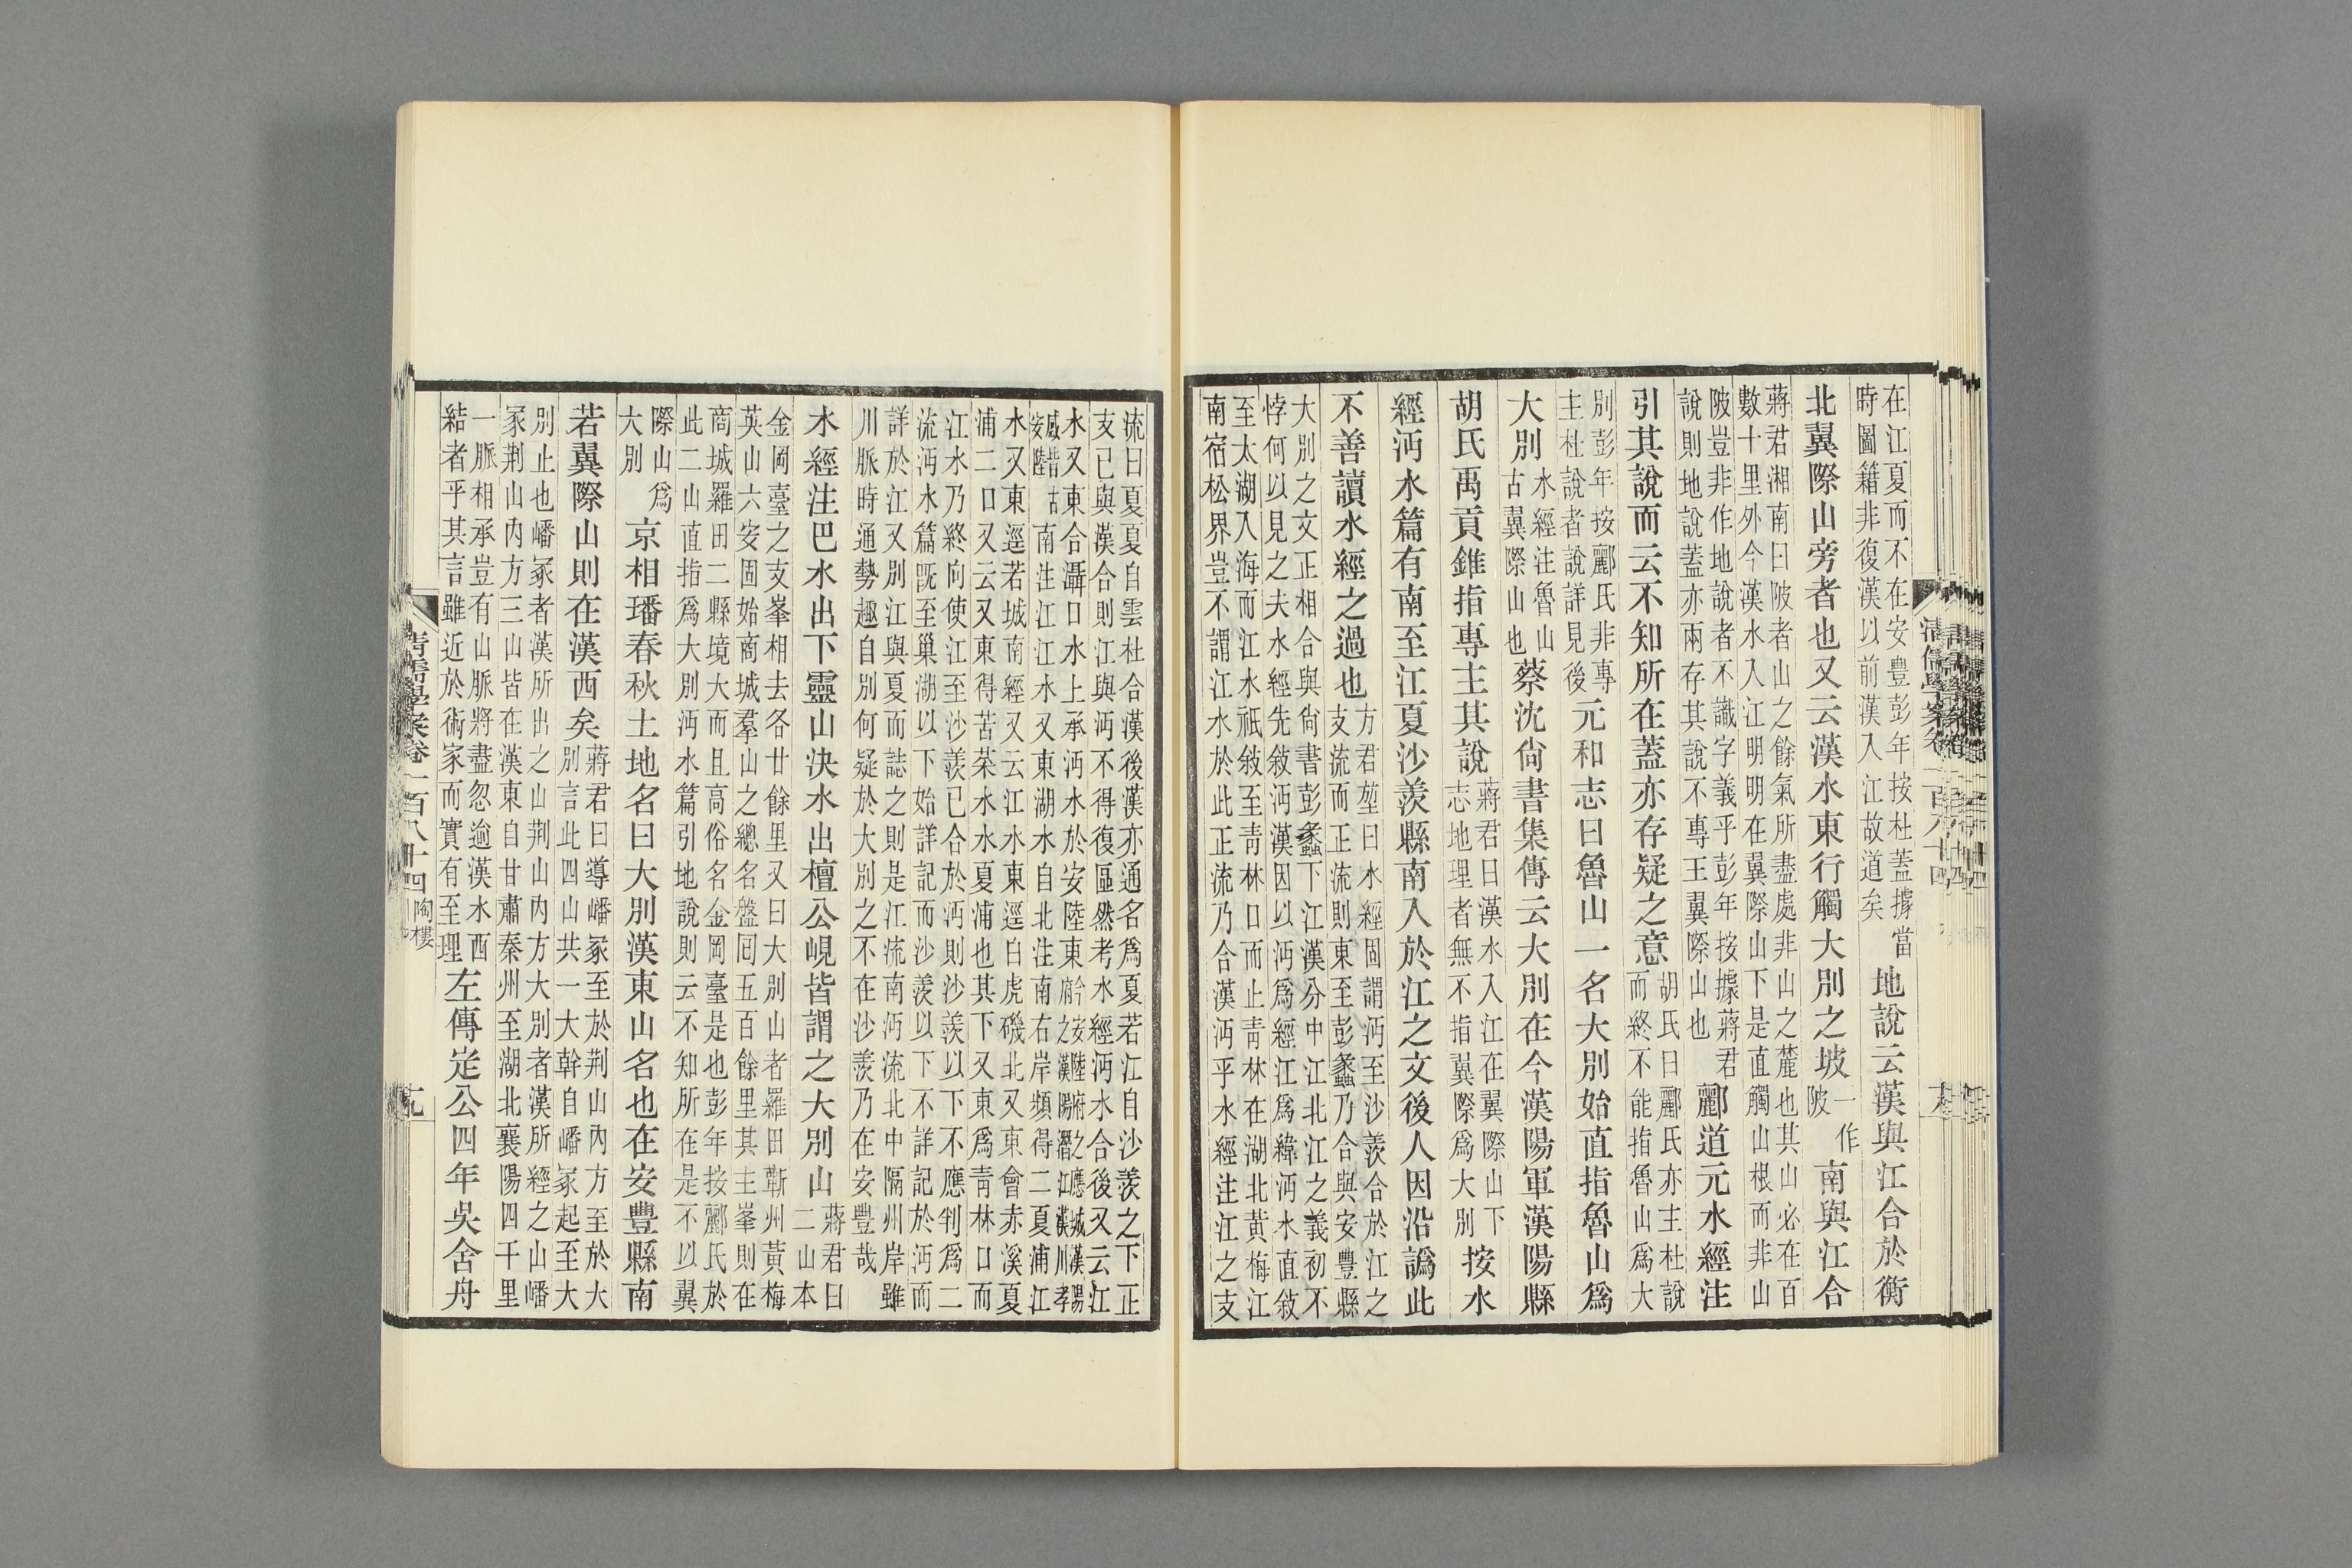 在江夏而不在安豐彭年按杜蓋據當
時圖籍非復漢以前漢入江故道矣
地說云漢與江合於衡
北翼際山旁者也又云漢水東行觸大別之坡一作陂南與江合
蔣君湘南曰陂者山之餘氣所盡處非山之麓也其山必在百
數十里外今漢水入江明明在翼際山下是直觸山根而非山
陂豈非作地說者不識字義乎彭年按據蔣君
說則地說蓋亦兩存其說不專王翼際山也
酈道元水經注
引其說而云不知所在蓋亦存疑之意
胡氏曰酈氏亦主杜說
而終不能指魯山爲大
別彭年按酈氏非專
主杜說者說詳見後
元和志曰魯山一名大別始直指魯山爲
大別
水經注魯山
古翼際山也
蔡沈尙書集傳云大別在今漢陽軍漢陽縣
胡氏禹貢錐指專主其說
蔣君曰漢水入江在翼際山下
志地理者無不指翼際爲大別
按水
經沔水篇有南至江夏沙羨縣南入於江之文後人因沿譌此
不善讀水經之過也
方君堃曰水經固謂沔至沙羨合於江之
支流而正流則東至彭蠡乃合與安豐縣
大別之文正相合與尙書彭蠡下江漢分中江北江之義初不
悖何以見之夫水經先敘沔漢因以沔爲經江爲緯沔水直敘
至太湖入海而江水祇敘至靑林口而止靑林在湖北黃梅江
南宿松界豈不謂江水於此正流乃合漢沔乎水經注江之支
流曰夏夏自雲杜合漢後漢亦通名爲夏若江自沙羨之下正
支已與漢合則江與沔不得復區然考水經沔水合後又云江
水又東合灄口水上承沔水於安陸
東
府之漢陽潛江漢川孝
感皆古安陸
南注江江水又東湖水自北注南右岸頻得二夏浦江
水又東逕若城南經又云江水東逕白虎磯北又東會赤溪夏
浦二口又云又東得苦菜水水夏浦也其下又東爲靑林口而
江水乃終向使江至沙羨已合於沔則沙羨以下不應判爲二
流沔水篇旣至巢湖以下始詳記而沙羨以下不詳記於沔而
詳於江又別江與夏而誌之則是江流南沔流北中隔州岸雖
川脈時通勢趣自別何疑於大別之不在沙羨乃在安豐哉
水經注巴水出下靈山決水出檀公峴皆謂之大別山
蔣君曰
二山本
金岡臺之支峯相去各廿餘里又曰大別山者羅田蘄州黃梅
英山六安固始商城羣山之總名盤回五百餘里其主峯則在
商城羅田二縣境大而且高俗名金岡臺是也彭年按酈氏於
此二山直指爲大別沔水篇引地說則云不知所在是不以翼
際山爲
大別
京相璠春秋土地名曰大別漢東山名也在安豐縣南
若翼際山則在漢西矣
蔣君曰導嶓冢至於荆山內方至於大
別言此四山共一大幹自嶓冢起至大
別止也嶓冢者漢所出之山荆山內方大別者漢所經之山嶓
冢荆山內方三山皆在漢東自甘肅秦州至湖北襄陽四千里
一脈相承豈有山脈將盡忽逾漢水西
結者乎其言雖近於術家而實有至理
左傳定公四年吳舍舟
清儒學案卷一百八十四
陶樓